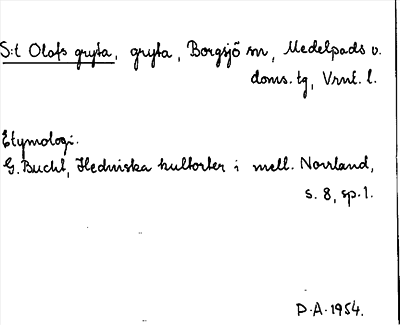 S:t Olofs gryta, gryta, Borgsjö sn, Medelpads v.
doms. tg, Vrnl. l.
Etymologi.
G. Bucht, Hedniska kultorter i mell. Norrland,
s. 8, sp. 1.
P.A. 1954.